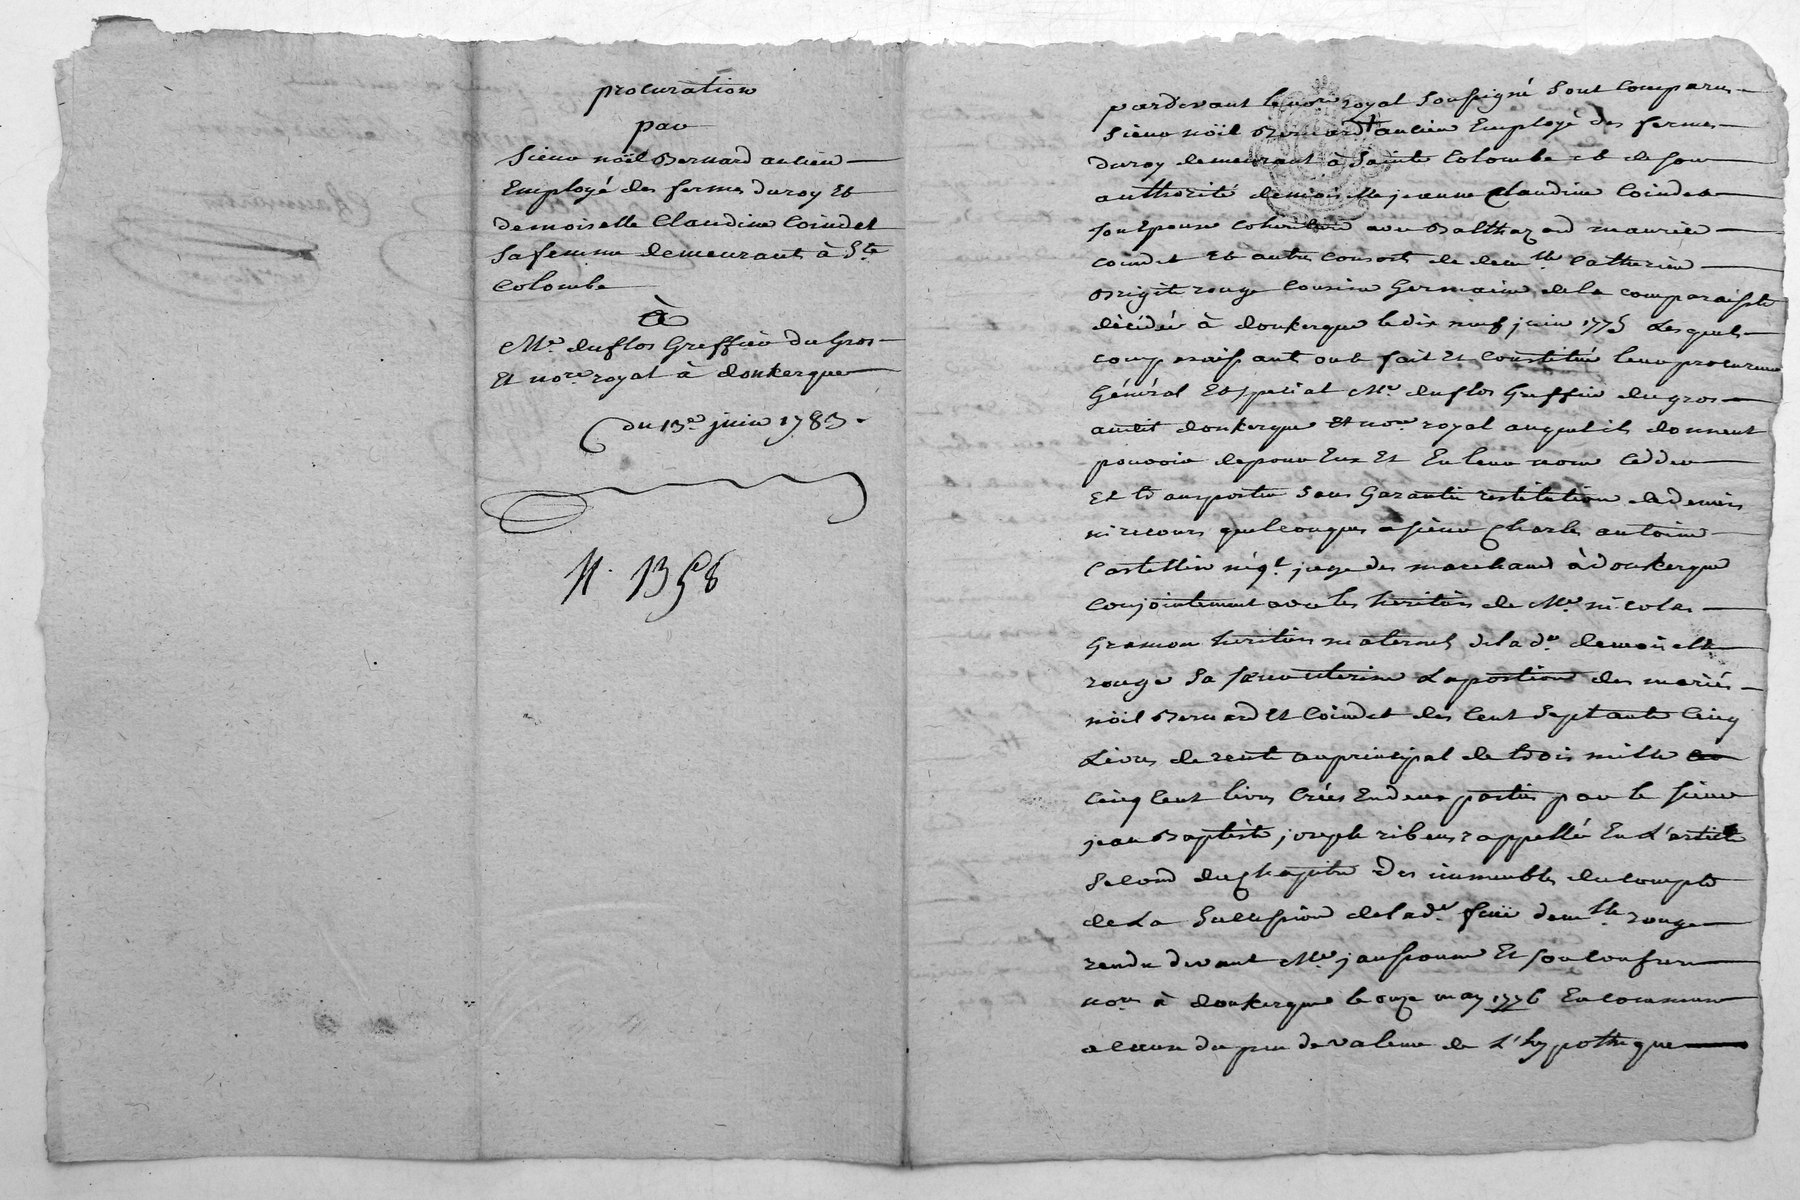 procuration
par
Sieur nöil Bernard ancien
Employé des fermes du roy Et
demoiselle Claudine Coindet
Sa femme demeurants à Ste
Colombe
à
Me. duflos Greffier du Gros
Et nore. royal à donkerque
du 13e juin 1783.
N. 1358
pardevant le nore royal Soussigné Sont Comparus
Sieur nöil Bernard ancien Employé des fermes
du roy demeurant à Sainte Colombe et de son
authorité demoiselle jeanne Claudine Coindet
son Epouse coheritière avec Balthazard maurice
coindet Et autres Consorts de demlle Catherine
Brigite rouge Cousine Germaine de la comparaisste
décédée à donkerque le dix neuf juin 1775 Lesquels
comparaissants ont fait Et Constitué leur procureur
Général Et special Me. duflos Greffier du gros
audit donkerque Et nore royal auquel ils donnent
pouvoir de pour Eux Et En leur nom Ceder
Et transporter Sans Garantie restitution de deniers
ni recours quelconques a sieur Charles antoine
Castellin négt. juge des marchands à donkerque
Conjointement avec les heritiers de Me. nicolas
Gramon heritiers maternels de la de. demoiselle
rouge Sa sœur uterine La portion des mariés
nöil Bernard Et Coindet des Cent Septante Cinq
Livres de rente au principal de trois mille
Cinq Cent livres Créés En deux parties par le sieur
jean Baptiste joseph ribeur rappellée En L'article
Second du chapitre Des immeubles du compte
de La Succession de la de. feüe demlle rouge
rendu devant Me janssoune Et son Confrere
nore à donkerque le onze may 1776 En commun
a cause du peu de valeur de L'hypotheque